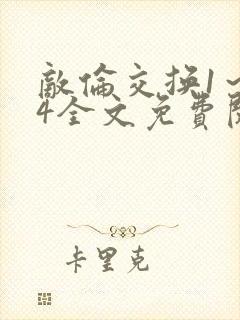 敵倫交换1~
4全文免費閱
卡里克